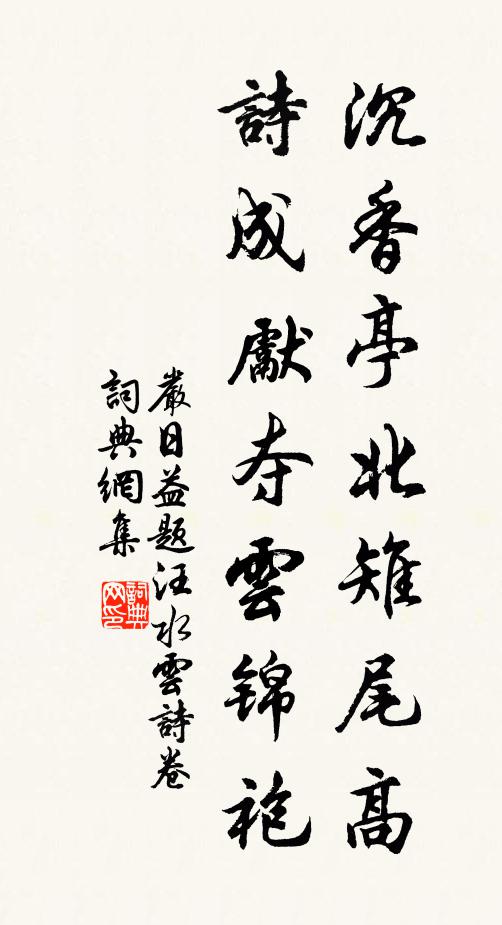 沉香亭北雉尾高
詩成獻夺雲锦袍
嚴日益題汪水雲詩卷
詞典網集
詞典
网印